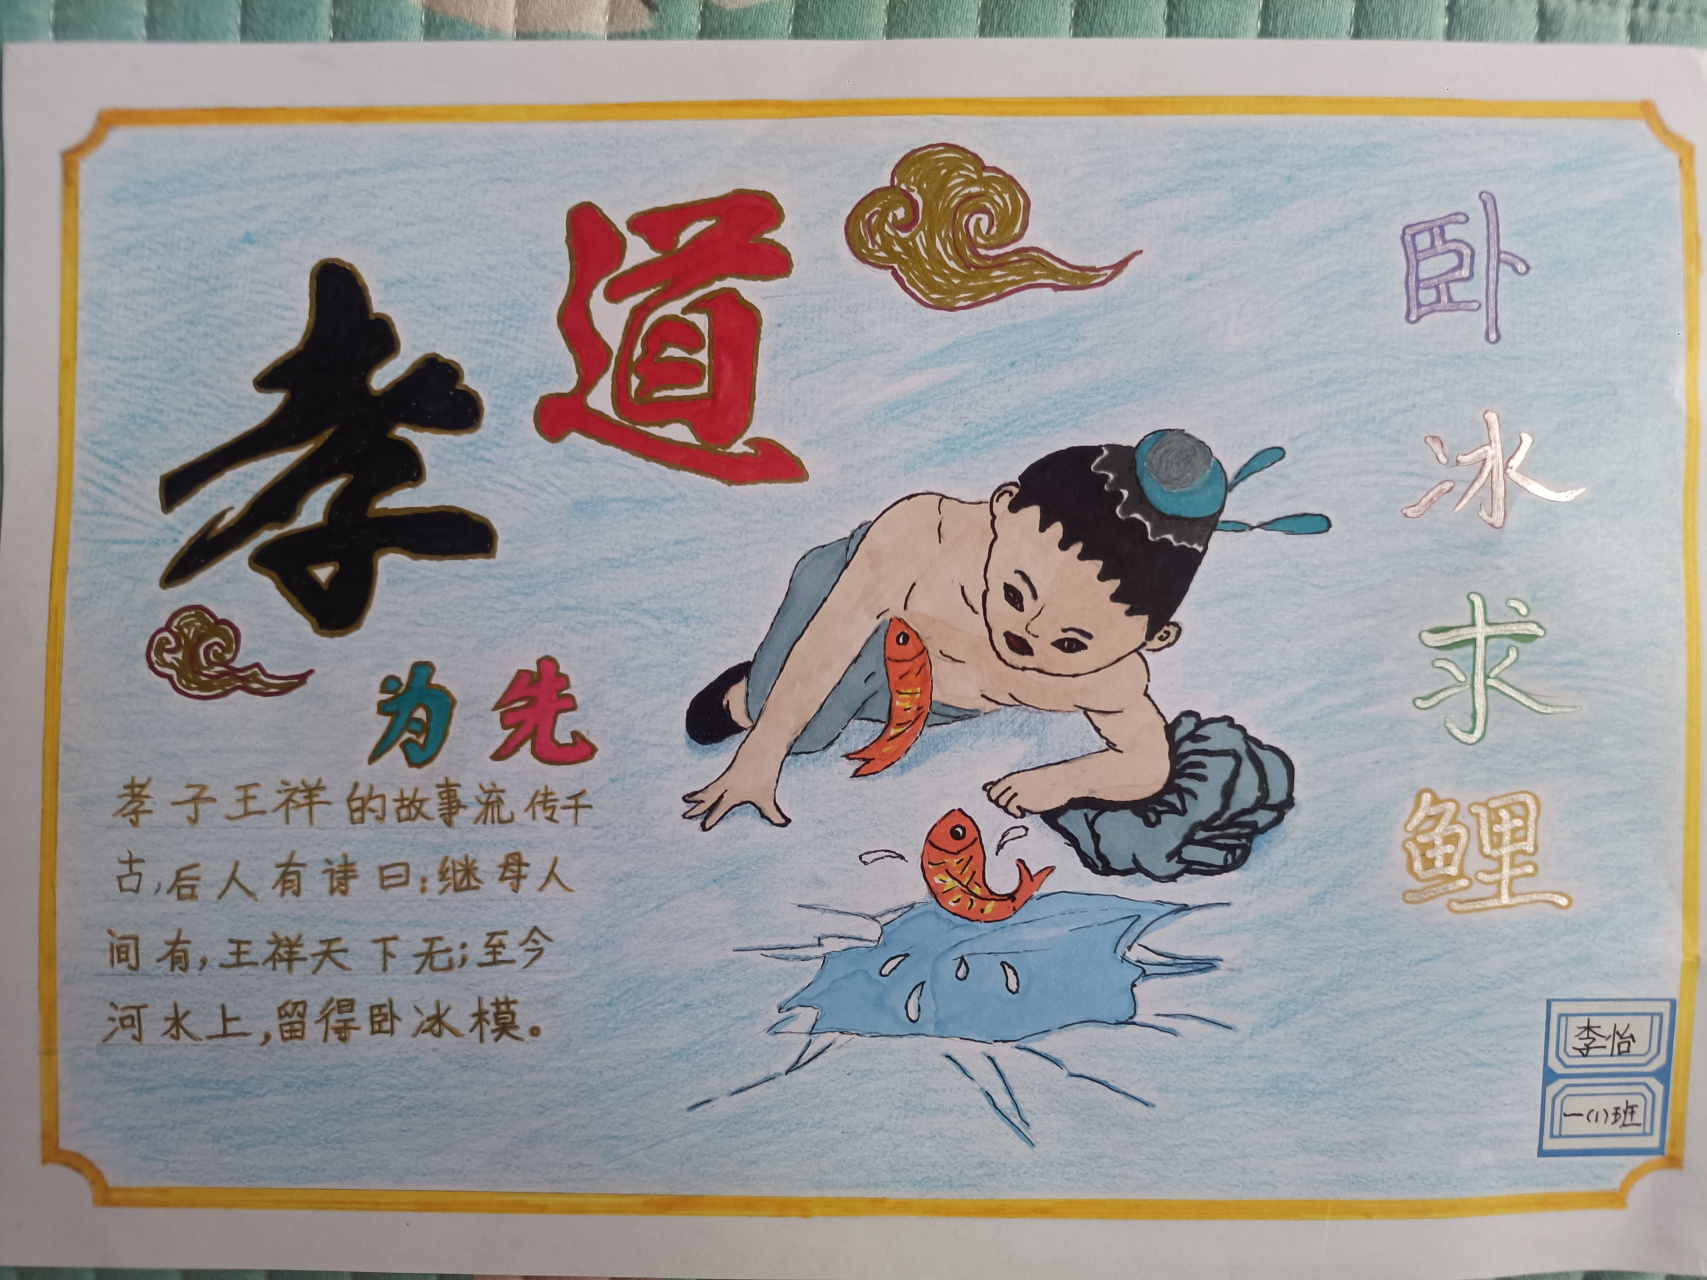 孝道
为先
孝子王祥的故事流传千
古,后人有诗曰:继母人
间有,王祥天下无;至今
河水上,留得卧冰模。
卧冰求鲤
李怡
一(1)班